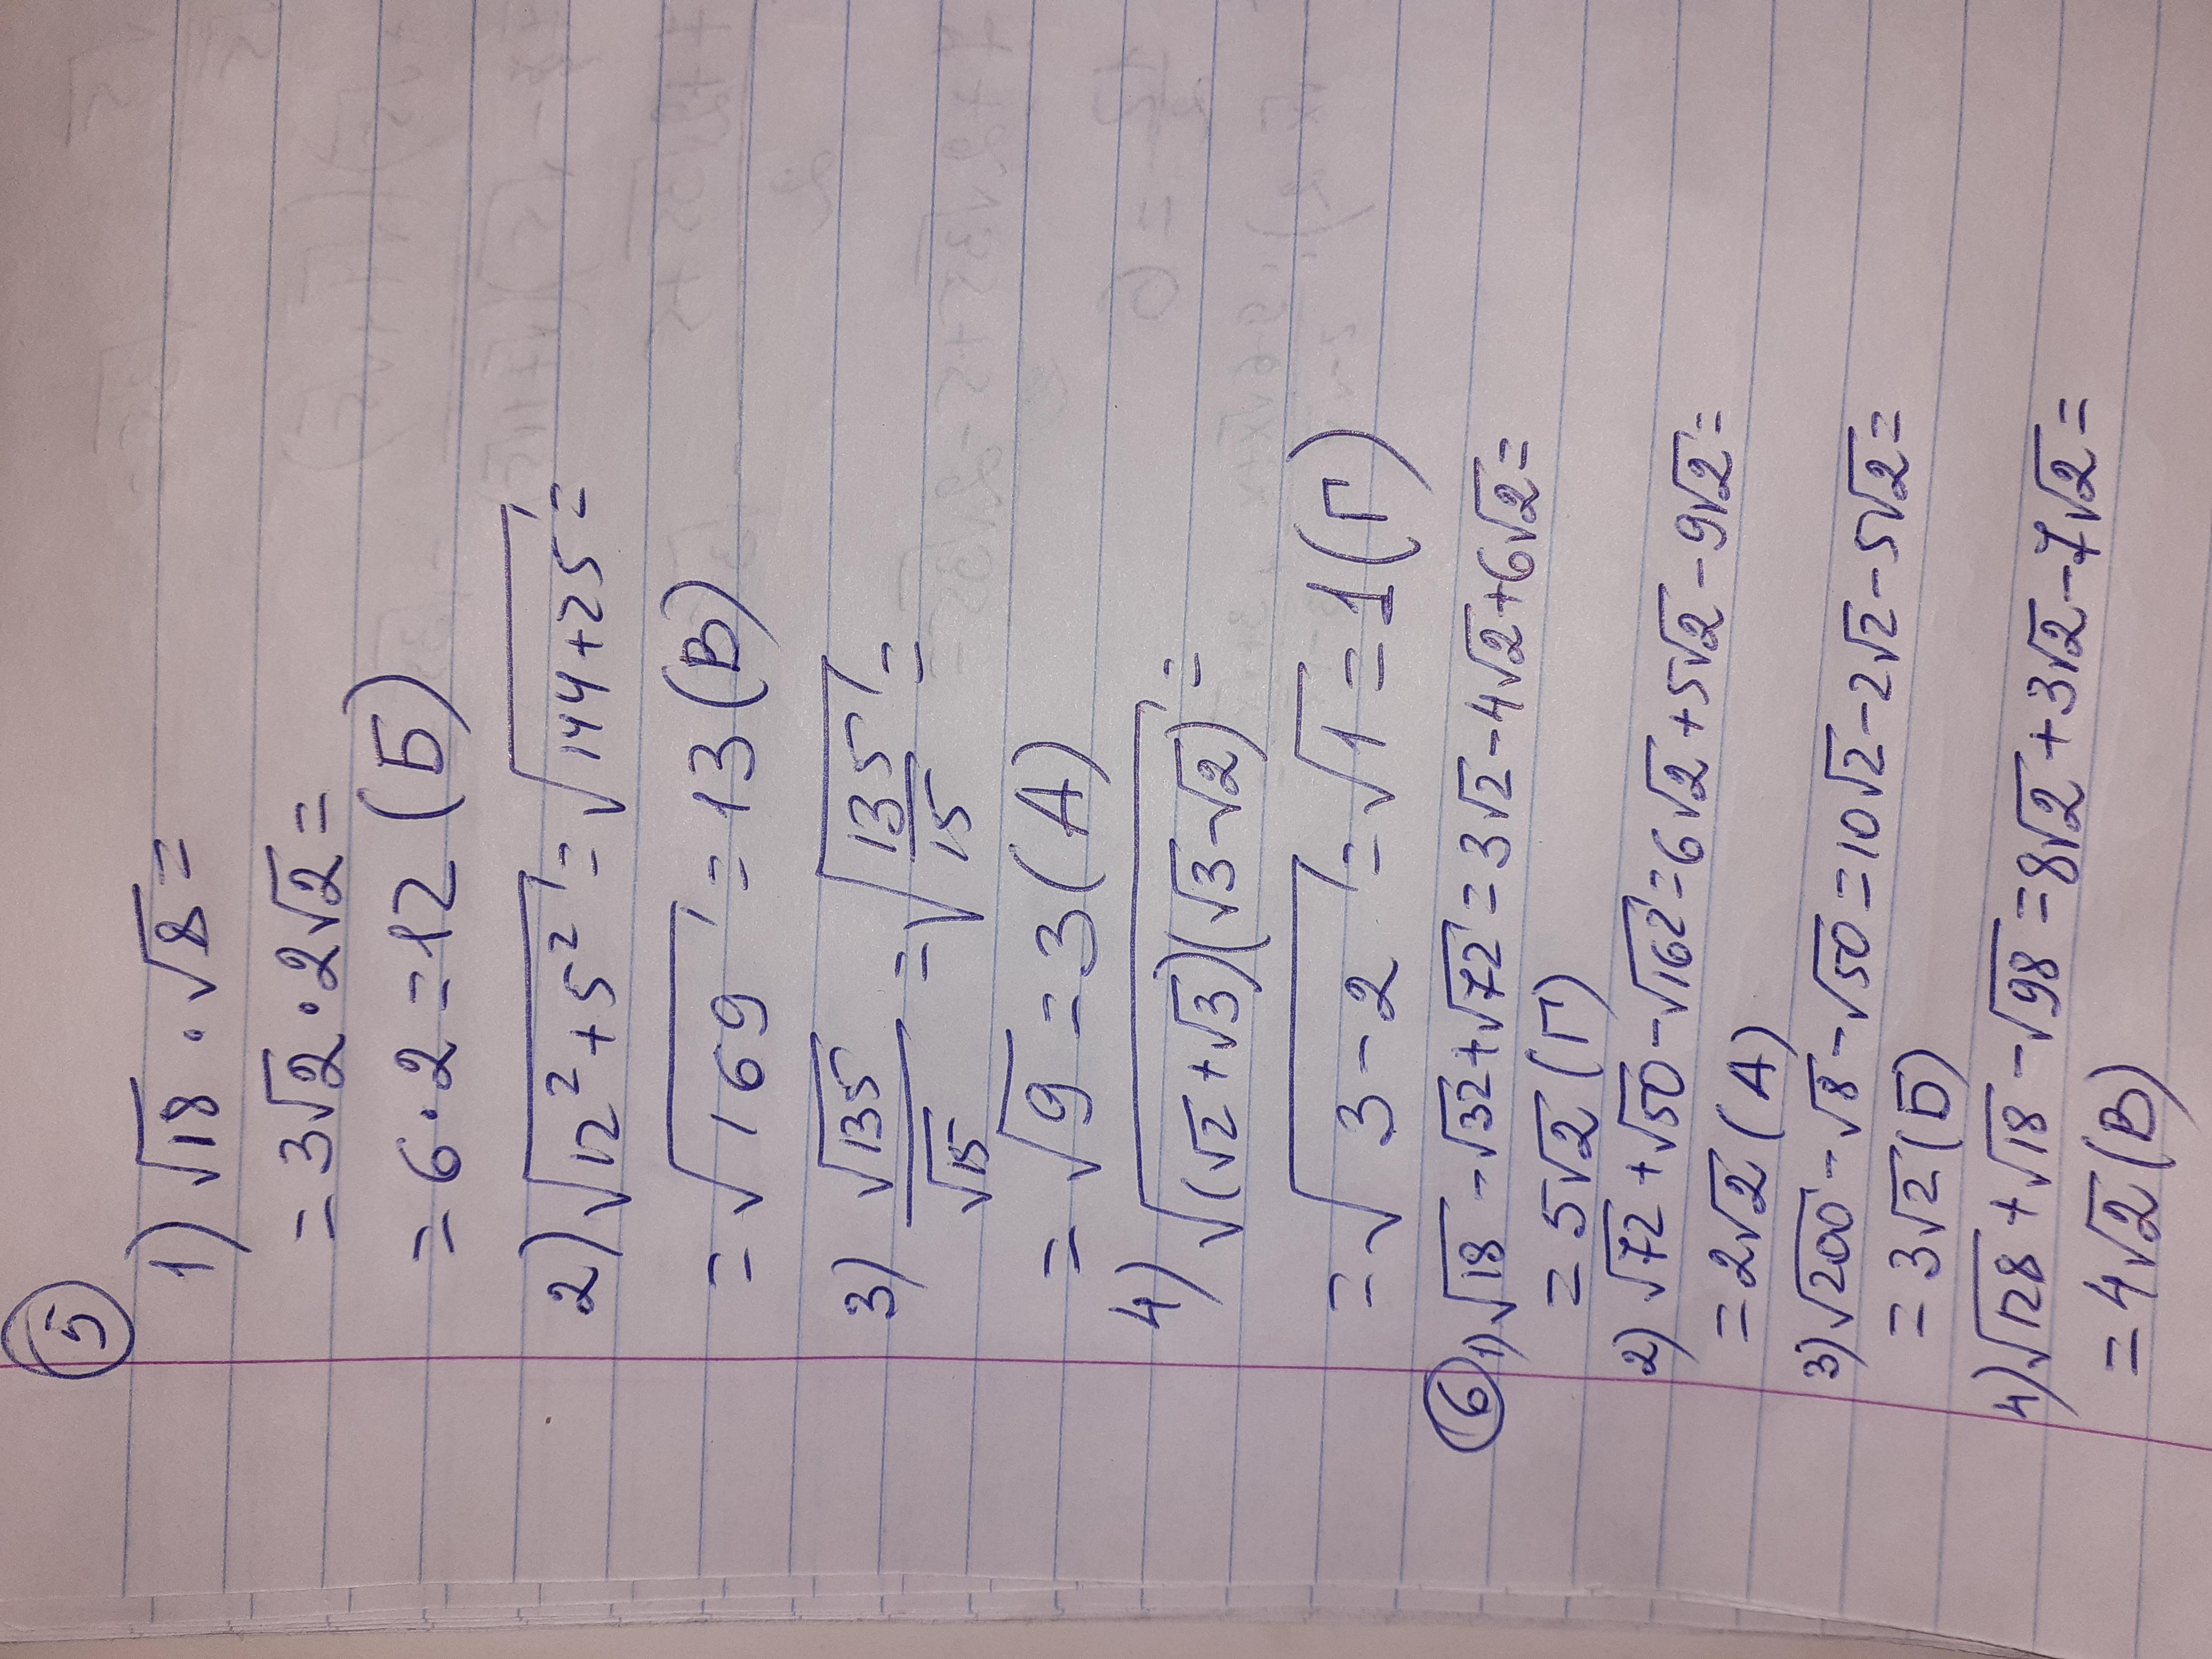 5
1) √18 · √8 =
= 3√2 · 2√2 =
= 6 · 2 = 12 (Б)
2) √(12² + 5²) = √(144 + 25) =
= √169 = 13 (В)
3) √135/√15 = √(135/15) =
= √9 = 3 (А)
4) √((√2 + √3)(√3 - √2)) =
= √(3 - 2) = √1 = 1 (Г)
6 1) √18 - √32 + √72 = 3√2 - 4√2 + 6√2 =
= 5√2 (Г)
2) √72 + √50 - √162 = 6√2 + 5√2 - 9√2 =
= 2√2 (А)
3) √200 - √8 - √50 = 10√2 - 2√2 - 5√2 =
= 3√2 (Б)
4) √128 + √18 - √98 = 8√2 + 3√2 - 7√2 =
= 4√2 (В)